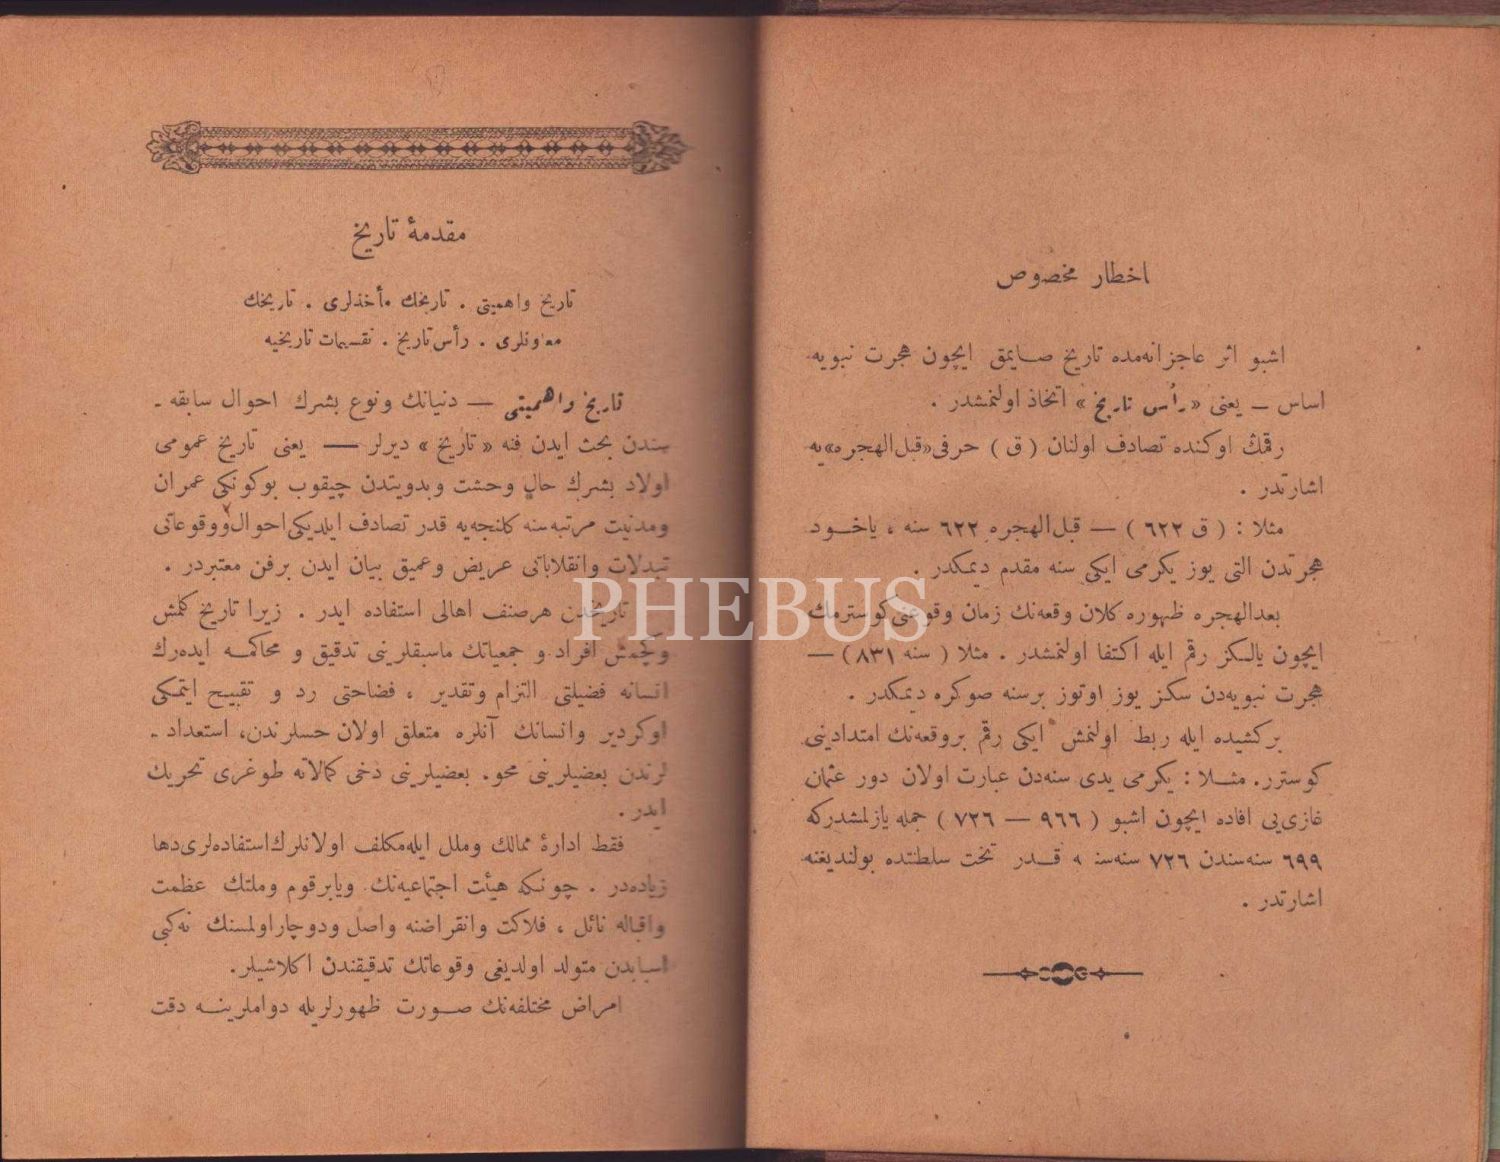 اخطار مخصوص
اشبو اثر عاجزانه‌مده تاریخ صایمق ایچون هجرت نبویه
اساس — یعنی «رأس تاریخ» اتخاذ اولنمشدر .
رقمك اوكنده تصادف اولنان ( ق ) حرفی «قبل‌الهجره» یه
اشارتدر .
مثلا : ( ق ٦٢٢ ) — قبل‌الهجره ٦٢٢ سنه ، یاخود
هجرتدن التی یوز یكرمی ایكی سنه مقدم دیمكدر .
بعدالهجره ظهوره كلان وقعه‌نك زمان وقوعنی كوسترمك
ایچون یالكز رقم ایله اكتفا اولنمشدر . مثلا ( سنه ٨٣١ ) —
هجرت نبویه‌دن سكز یوز اوتوز برسنه صوكره دیمكدر .
بركشیده ایله ربط اولنمش ایكی رقم بروقعه‌نك امتدادینی
كوسترر. مثلا : یكرمی یدی سنه‌دن عبارت اولان دور عثمان
غازی‌یی افاده ایچون اشبو ( ٩٦٦ — ٧٢٦ ) جمله یازلمشدركه
٦٩٩ سنه‌سندن ٧٢٦ سنه‌سنه قدر تخت سلطنتده بولندیغنه
اشارتدر .
مقدمهٔ تاریخ
تاریخ واهمیتی . تاریخك مأخذلری . تاریخك
معاونلری . رأس تاریخ . تقسیمات تاریخیه
تاریخ واهمیتی — دنیانك ونوع بشرك احوال سابقه -
سندن بحث ایدن فنه « تاریخ » دیرلر — یعنی تاریخ عمومی
اولاد بشرك حال وحشت وبدویتدن چیقوب بوكونكی عمران
ومدنیت مرتبه‌سنه كلنجه‌یه قدر تصادف ایلدیكی احوال ووقوعاتی
تبدلات وانقلاباتی عریض وعمیق بیان ایدن برفن معتبردر .
تاریخدن هرصنف اهالی استفاده ایدر . زیرا تاریخ كلمش
وكچمش افراد و جمعیاتك ماسبقلرینی تدقیق و محاكمه ایده‌رك
انسانه فضیلتی التزام وتقدیر ، فضاحتی رد و تقبیح ایتمكی
اوكردیر وانسانك آنلره متعلق اولان حسلرندن، استعداد -
لرندن بعضیلرینی محو. بعضیلرینی دخی كمالاته طوغری تحریك
ایدر .
فقط ادارهٔ ممالك وملل ایله مكلف اولانلرك استفاده‌لری دها
زیاده‌در . چونكه هیئت اجتماعیه‌نك ویابرقوم وملتك عظمت
واقباله نائل ، فلاكت وانقراضنه واصل ودوچار اولمسنك نه‌كبی
اسبابدن متولد اولدیغی وقوعاتك تدقیقندن اكلاشیلر.
امراض مختلفه‌نك صورت ظهورلریله دواملرینه دقت
PHEBUS